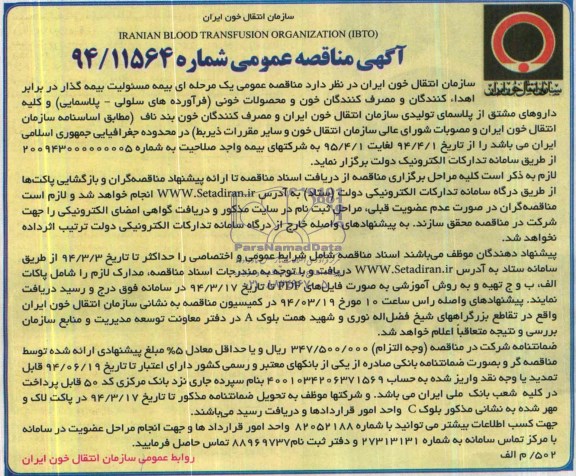 سازمان انتقال خون ایران
IRANIAN BLOOD TRANSFUSION ORGANIZATION (IBTO)
آگهی مناقصه عمومی شماره ۹۴/۱۱۵۶۴
سازمان انتقال خون ایران
سازمان انتقال خون ایران در نظر دارد مناقصه عمومی یک مرحله ای بیمه مسئولیت بیمه گذار در برابر
اهداء کنندگان و مصرف کنندگان خون و محصولات خونی (فرآورده های سلولی - پلاسمایی) و کلیه
داروهای مشتق از پلاسمای تولیدی سازمان انتقال خون ایران و مصرف کنندگان خون بند ناف (مطابق اساسنامه سازمان
انتقال خون ایران و مصوبات شورای عالی سازمان انتقال خون و سایر مقررات ذیربط) در محدوده جغرافیایی جمهوری اسلامی
ایران می باشد را از تاریخ ۹۴/۴/۱ لغایت ۹۵/۴/۱ به شرکتهای بیمه واجد صلاحیت به شماره ۲۰۰۹۴۳۰۰۰۰۰۰۰۵
از طریق سامانه تدارکات الکترونیک دولت برگزار نماید.
لازم به ذکر است کلیه مراحل برگزاری مناقصه از دریافت اسناد مناقصه تا ارائه پیشنهاد مناقصه‌گران و بازگشایی پاکت‌ها
از طریق درگاه سامانه تدارکات الکترونیکی دولت (ستاد) به آدرس WWW.Setadiran.ir انجام خواهد شد و لازم است
مناقصه‌گران در صورت عدم عضویت قبلی، مراحل ثبت نام در سایت مذکور و دریافت گواهی امضای الکترونیکی را جهت
شرکت در مناقصه محقق سازند. به پیشنهادهای واصله خارج از درگاه سامانه تدارکات الکترونیکی دولت ترتیب اثرداده
نخواهد شد.
ParsNamadData
پیشنهاد دهندگان موظف می‌باشند اسناد مناقصه شامل شرایط عمومی و اختصاصی را حداکثر تا تاریخ ۹۴/۳/۳ از طریق
سامانه ستاد به آدرس WWW.Setadiran.ir دریافت و با توجه به مندرجات اسناد مناقصه، مدارک لازم را شامل پاکات
الف، ب و ج تهیه و به روش آموزشی به صورت فایل‌های PDF تا تاریخ ۹۴/۳/۱۷ در سامانه فوق درج و رسید دریافت
نمایند. پیشنهادهای واصله راس ساعت ۱۰ مورخ ۹۴/۰۳/۱۹ در کمیسیون مناقصه به نشانی سازمان انتقال خون ایران
واقع در تقاطع بزرگراههای شیخ فضل‌اله نوری و شهید همت بلوک A در دفتر معاونت توسعه مدیریت و منابع سازمان
بررسی و نتیجه متعاقباً اعلام خواهد شد.
ضمانتنامه شرکت در مناقصه (وجه التزام) ۳۴۷/۵۰۰/۰۰۰ ریال و یا حداقل معادل ۵% مبلغ پیشنهادی ارائه شده توسط
مناقصه گر و بصورت ضمانتنامه بانکی صادره از یکی از بانکهای معتبر و رسمی کشور دارای اعتبار تا تاریخ ۹۴/۰۶/۱۹ قابل
تمدید یا وجه نقد واریز شده به حساب ۴۰۰۱۰۳۴۲۰۶۳۷۱۵۶۹ بنام سپرده جاری نزد بانک مرکزی کد ۵۰ قابل پرداخت
در کلیه شعب بانک ملی ایران می باشد. و شرکتها موظف به تحویل ضمانتنامه مذکور تا تاریخ ۹۴/۳/۱۷ در پاکت لاک و
مهر شده به نشانی مذکور بلوک C واحد امور قراردادها و دریافت رسید می‌باشند.
جهت کسب اطلاعات بیشتر می توانید با شماره ۸۲۰۵۲۱۸۸ واحد امور قرارداد ها و جهت انجام مراحل عضویت در سامانه
با مرکز تماس سامانه به شماره ۲۷۳۱۳۱۳۱ و دفتر ثبت نام ۸۸۹۶۹۷۳۷ تماس حاصل فرمایید.
۵۰۲/ م الف
روابط عمومی سازمان انتقال خون ایران